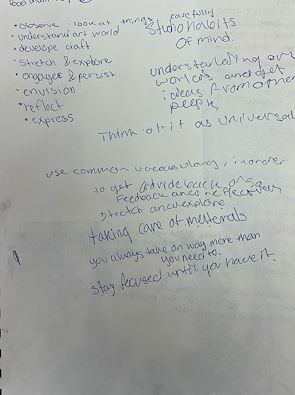 • observe - look at things carefully
• understand art world
• develop craft
• stretch & explore
• engage & persist
• envision
• reflect
• express
Studio habits
of mind.
understanding art
worlds and get
ideas from other
people
Think of it as universal
use common vocabulary, in order
to get
Feedback and reflection
stretch and explore
taking care of materials
you always take on way more than
you need to.
stay focused until you have it.